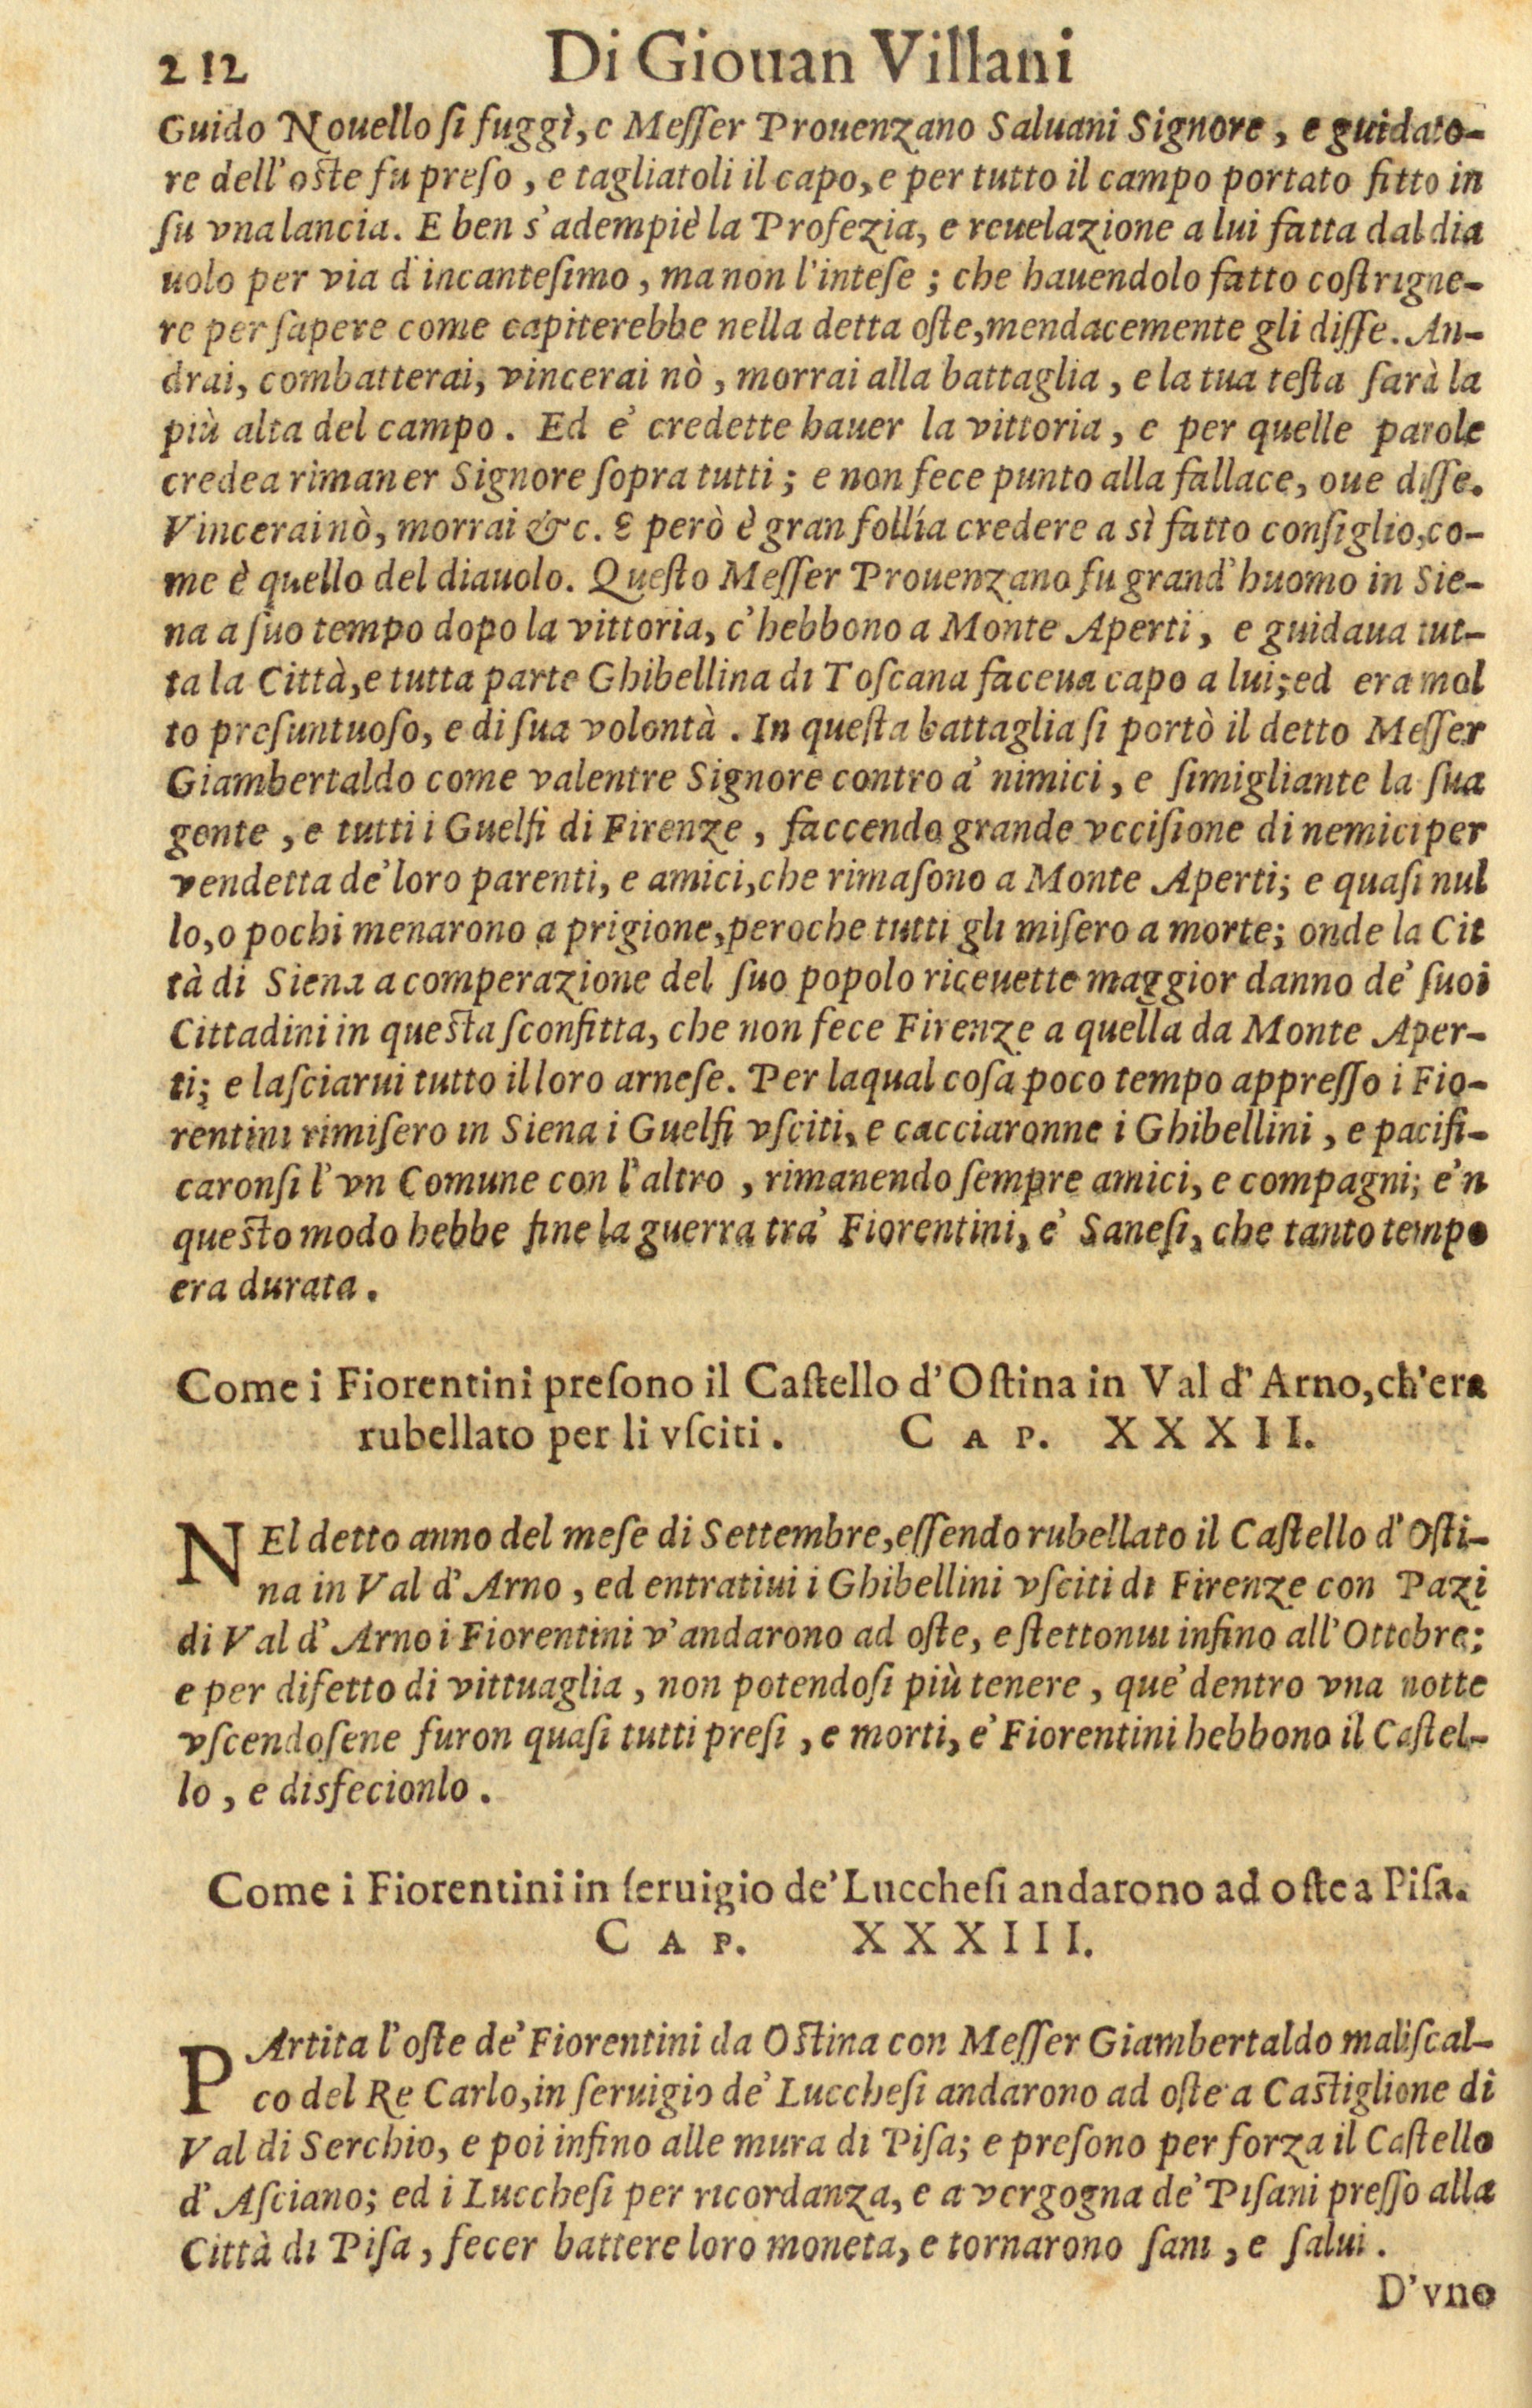 212 Di Giouan Villani
Guido Nouello ſi fuggì, e Meſſer Prouenzano Saluani Signore, e guidato-
re dell'oſte fu preſo, e tagliatoli il capo, e per tutto il campo portato fitto in
ſu vna lancia. E ben s'adempiè la Profezia, e reuelazione a lui fatta dal dia
uolo per via d'incanteſimo, ma non l'inteſe; che hauendolo fatto coſtrigne-
re per ſapere come capiterebbe nella detta oſte, mendacemente gli diſſe. An-
drai, combatterai, vincerai nò, morrai alla battaglia, e la tua teſta ſarà la
più alta del campo. Ed e' credette hauer la vittoria, e per quelle parole
credea rimaner Signore ſopra tutti; e non fece punto alla fallace, oue diſſe.
Vincerai nò, morrai &c. E però è gran follía credere a sì fatto conſiglio, co-
me è quello del diauolo. Queſto Meſſer Prouenzano fu grand'huomo in Sie-
na a ſuo tempo dopo la vittoria, c'hebbono a Monte Aperti, e guidaua tut-
ta la Città, e tutta parte Ghibellina di Toſcana faceua capo a lui; ed era mol
to preſuntuoſo, e di ſua volontà. In queſta battaglia ſi portò il detto Meſſer
Giambertaldo come valentre Signore contro a' nimici, e ſimigliante la ſua
gente, e tutti i Guelfi di Firenze, faccendo grande vcciſione di nemici per
vendetta de' loro parenti, e amici, che rimaſono a Monte Aperti; e quaſi nul
lo, o pochi menarono a prigione, peroche tutti gli miſero a morte; onde la Cit
tà di Siena a comperazione del ſuo popolo riceuette maggior danno de' ſuoi
Cittadini in queſta ſconfitta, che non fece Firenze a quella da Monte Aper-
ti; e laſciarui tutto il loro arneſe. Per laqual coſa poco tempo appreſſo i Fio-
rentini rimiſero in Siena i Guelfi vſciti, e cacciaronne i Ghibellini, e pacifi-
caronſi l'vn Comune con l'altro, rimanendo ſempre amici, e compagni; e'n
queſto modo hebbe fine la guerra tra' Fiorentini, e' Saneſi, che tanto tempo
era durata.
Come i Fiorentini preſono il Caſtello d'Oſtina in Val d'Arno, ch'era
rubellato per li vſciti. CAP. XXXII.
NEl detto anno del meſe di Settembre, eſſendo rubellato il Caſtello d'Oſti-
na in Val d'Arno, ed entratiui i Ghibellini vſciti di Firenze con Pazi
di Val d'Arno i Fiorentini v'andarono ad oſte, e ſtettonui infino all'Ottobre;
e per difetto di vittuaglia, non potendoſi più tenere, que' dentro vna notte
vſcendoſene furon quaſi tutti preſi, e morti, e' Fiorentini hebbono il Caſtel-
lo, e disfecionlo.
Come i Fiorentini in ſeruigio de' Luccheſi andarono ad oſte a Piſa.
CAP. XXXIII.
PArtita l'oſte de' Fiorentini da Oſtina con Meſſer Giambertaldo maliſcal-
co del Re Carlo, in ſeruigio de' Luccheſi andarono ad oſte a Caſtiglione di
Val di Serchio, e poi infino alle mura di Piſa; e preſono per forza il Caſtello
d'Aſciano; ed i Luccheſi per ricordanza, e a vergogna de' Piſani preſſo alla
Città di Piſa, fecer battere loro moneta, e tornarono ſani, e ſalui.
D'vno